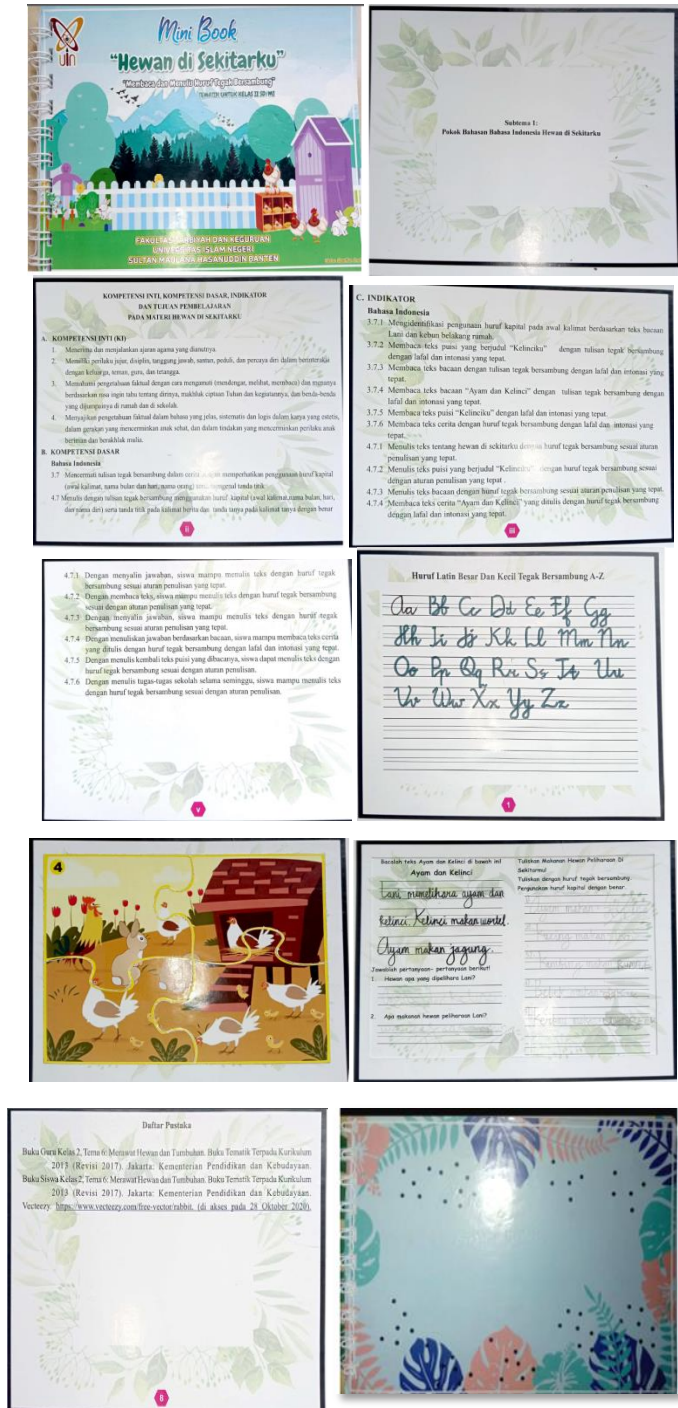 uin
Mini Book
"Hewan di Sekitarku"
"Membaca dan Menulis Huruf Tegak Bersambung"
TEMATIK UNTUK KELAS II SD/MI
FAKULTAS TARBIYAH DAN KEGURUAN
UNIVERSITAS ISLAM NEGERI
SULTAN MAULANA HASANUDDIN BANTEN
Subtema 1:
Pokok Bahasan Bahasa Indonesia Hewan di Sekitarku
KOMPETENSI INTI, KOMPETENSI DASAR, INDIKATOR
DAN TUJUAN PEMBELAJARAN
PADA MATERI HEWAN DI SEKITARKU
A. KOMPETENSI INTI (KI)
1. Menerima dan menjalankan ajaran agama yang dianutnya.
2. Memiliki perilaku jujur, disiplin, tanggung jawab, santun, peduli, dan percaya diri dalam berinteraksi
dengan keluarga, teman, guru, dan tetangga.
3. Memahami pengetahuan faktual dengan cara mengamati (mendengar, melihat, membaca) dan menanya
berdasarkan rasa ingin tahu tentang dirinya, makhluk ciptaan Tuhan dan kegiatannya, dan benda-benda
yang dijumpainya di rumah dan di sekolah.
4. Menyajikan pengetahuan faktual dalam bahasa yang jelas, sistematis dan logis dalam karya yang estetis,
dalam gerakan yang mencerminkan anak sehat, dan dalam tindakan yang mencerminkan perilaku anak
beriman dan berakhlak mulia.
B. KOMPETENSI DASAR
Bahasa Indonesia
3.7 Mencermati tulisan tegak bersambung dalam cerita dengan memperhatikan penggunaan huruf kapital
(awal kalimat, nama bulan dan hari, nama orang) serta mengenal tanda titik
4.7 Menulis dengan tulisan tegak bersambung menggunakan huruf kapital (awal kalimat, nama bulan, hari,
dan nama diri) serta tanda titik pada kalimat berita dan tanda tanya pada kalimat tanya dengan benar
ii
C. INDIKATOR
Bahasa Indonesia
3.7.1 Mengidentifikasi pengunaan huruf kapital pada awal kalimat berdasarkan teks bacaan
Lani dan kebun belakang rumah.
3.7.2 Membaca teks puisi yang berjudul "Kelinciku" dengan tulisan tegak bersambung
dengan lafal dan intonasi yang tepat.
3.7.3 Membaca teks bacaan dengan tulisan tegak bersambung dengan lafal dan intonasi yang
tepat.
3.7.4 Membaca teks bacaan "Ayam dan Kelinci" dengan tulisan tegak bersambung dengan
lafal dan intonasi yang tepat.
3.7.5 Membaca teks puisi "Kelinciku" dengan lafal dan intonasi yang tepat.
3.7.6 Membaca teks cerita dengan huruf tegak bersambung dengan lafal dan intonasi yang
tepat.
4.7.1 Menulis teks tentang hewan di sekitarku dengan huruf tegak bersambung sesuai aturan
penulisan yang tepat.
4.7.2 Menulis teks puisi yang berjudul "Kelinciku" dengan huruf tegak bersambung sesuai
dengan aturan penulisan yang tepat .
4.7.3 Menulis teks bacaan dengan huruf tegak bersambung sesuai aturan penulisan yang tepat.
4.7.4 Membaca teks cerita "Ayam dan Kelinci" yang ditulis dengan huruf tegak bersambung
dengan lafal dan intonasi yang tepat.
iii
4.7.1 Dengan menyalin jawaban, siswa mampu menulis teks dengan huruf tegak
bersambung sesuai aturan penulisan yang tepat.
4.7.2 Dengan membaca teks, siswa mampu menulis teks dengan huruf tegak bersambung
sesuai dengan aturan penulisan yang tepat.
4.7.3 Dengan menyalin jawaban, siswa mampu menulis teks dengan huruf tegak
bersambung sesuai aturan penulisan yang tepat.
4.7.4 Dengan menuliskan jawaban berdasarkan bacaan, siswa mampu membaca teks cerita
yang ditulis dengan huruf tegak bersambung dengan lafal dan intonasi yang tepat.
4.7.5 Dengan menulis kembali teks puisi yang dibacanya, siswa dapat menulis teks dengan
huruf tegak bersambung sesuai dengan aturan penulisan.
4.7.6 Dengan menulis tugas-tugas sekolah selama seminggu, siswa mampu menulis teks
dengan huruf tegak bersambung sesuai dengan aturan penulisan.
v
Huruf Latin Besar Dan Kecil Tegak Bersambung A-Z
Aa Bb Cc Dd Ee Ff Gg
Hh Ii Jj Kk Ll Mm Nn
Oo Pp Qq Rr Ss Tt Uu
Vv Ww Xx Yy Zz
1
4
Bacalah teks Ayam dan Kelinci di bawah ini!
Ayam dan Kelinci
Lani memelihara ayam dan
kelinci. Kelinci makan wortel.
Ayam makan jagung.
Jawablah pertanyaan- pertanyaan berikut!
1. Hewan apa yang dipelihara Lani?
2. Apa makanan hewan peliharaan Lani?
Tuliskan Makanan Hewan Peliharaan Di
Sekitarmu!
Tuliskan dengan huruf tegak bersambung.
Pergunakan huruf kapital dengan benar.
Daftar Pustaka
Buku Guru Kelas 2, Tema 6: Merawat Hewan dan Tumbuhan. Buku Tematik Terpadu Kurikulum
2013 (Revisi 2017). Jakarta: Kementerian Pendidikan dan Kebudayaan.
Buku Siswa Kelas 2, Tema 6: Merawat Hewan dan Tumbuhan. Buku Tematik Terpadu Kurikulum
2013 (Revisi 2017). Jakarta: Kementerian Pendidikan dan Kebudayaan.
Vecteezy. https://www.vecteezy.com/free-vector/rabbit. (di akses pada 28 Oktober 2020).
8